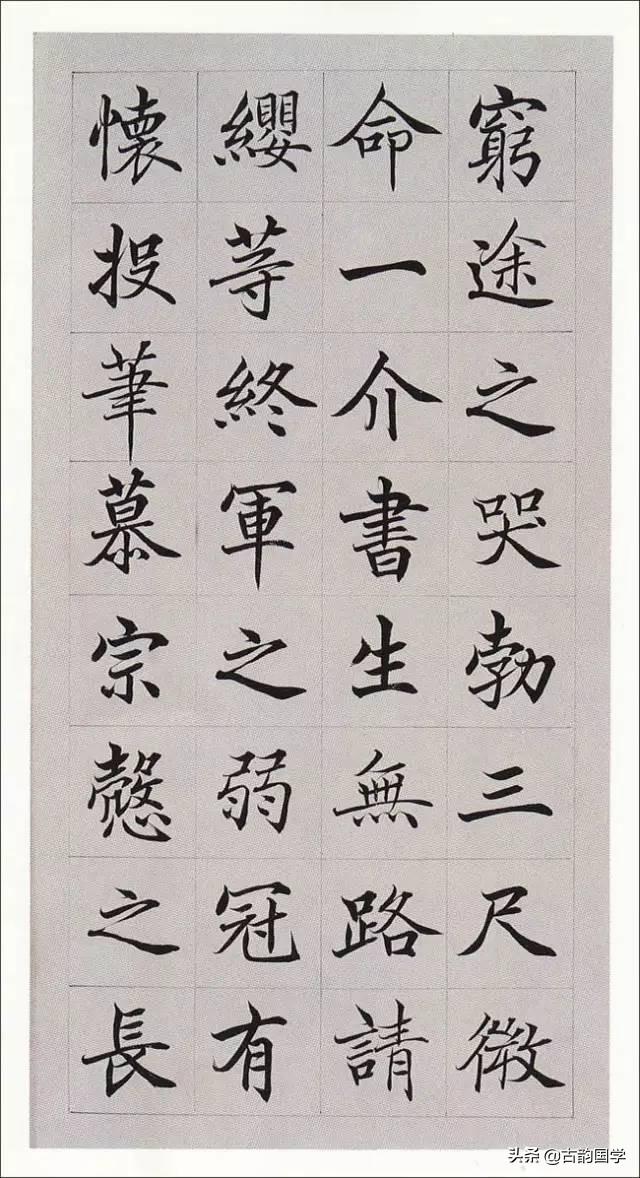 窮途之哭勃三尺微
命一介書生無路請
纓等終軍之弱冠有
懷投筆慕宗愨之長
头条 @古韵国学